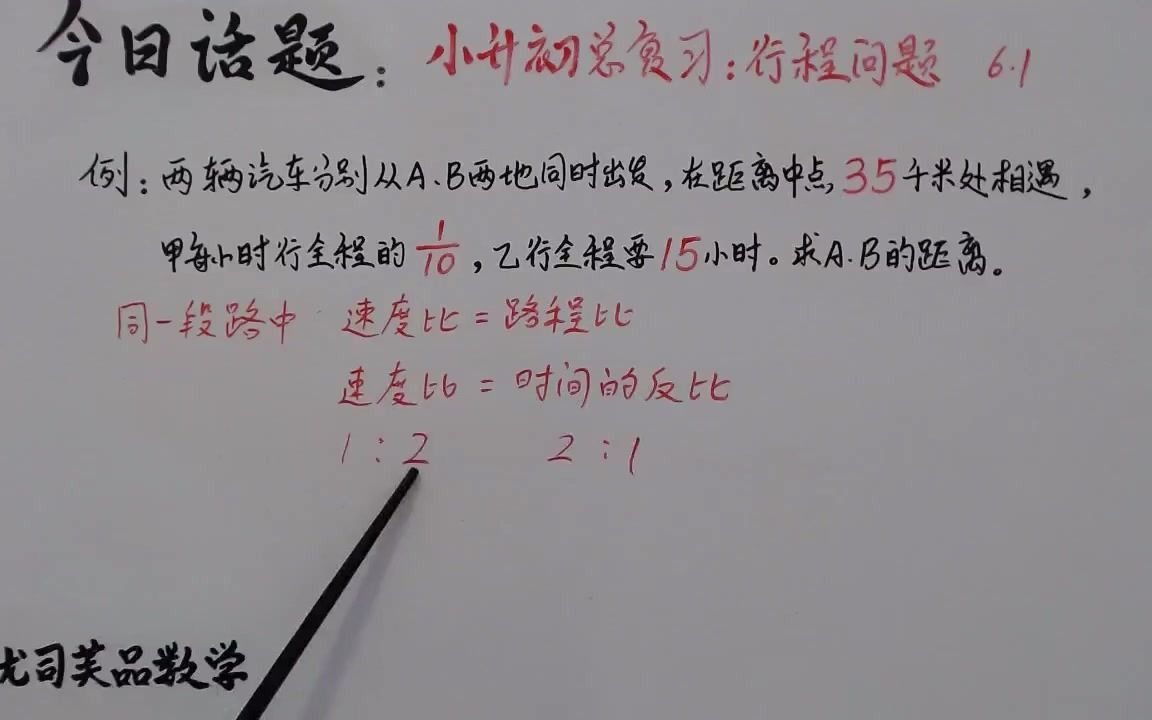 今日话题：小升初总复习：行程问题 6.1
例：两辆汽车分别从A.B两地同时出发，在距离中点35千米处相遇，
甲每小时行全程的1/10，乙行全程要15小时。求A.B的距离。
同一段路中 速度比=路程比
速度比=时间的反比
1:2 2:1
司芙品数学